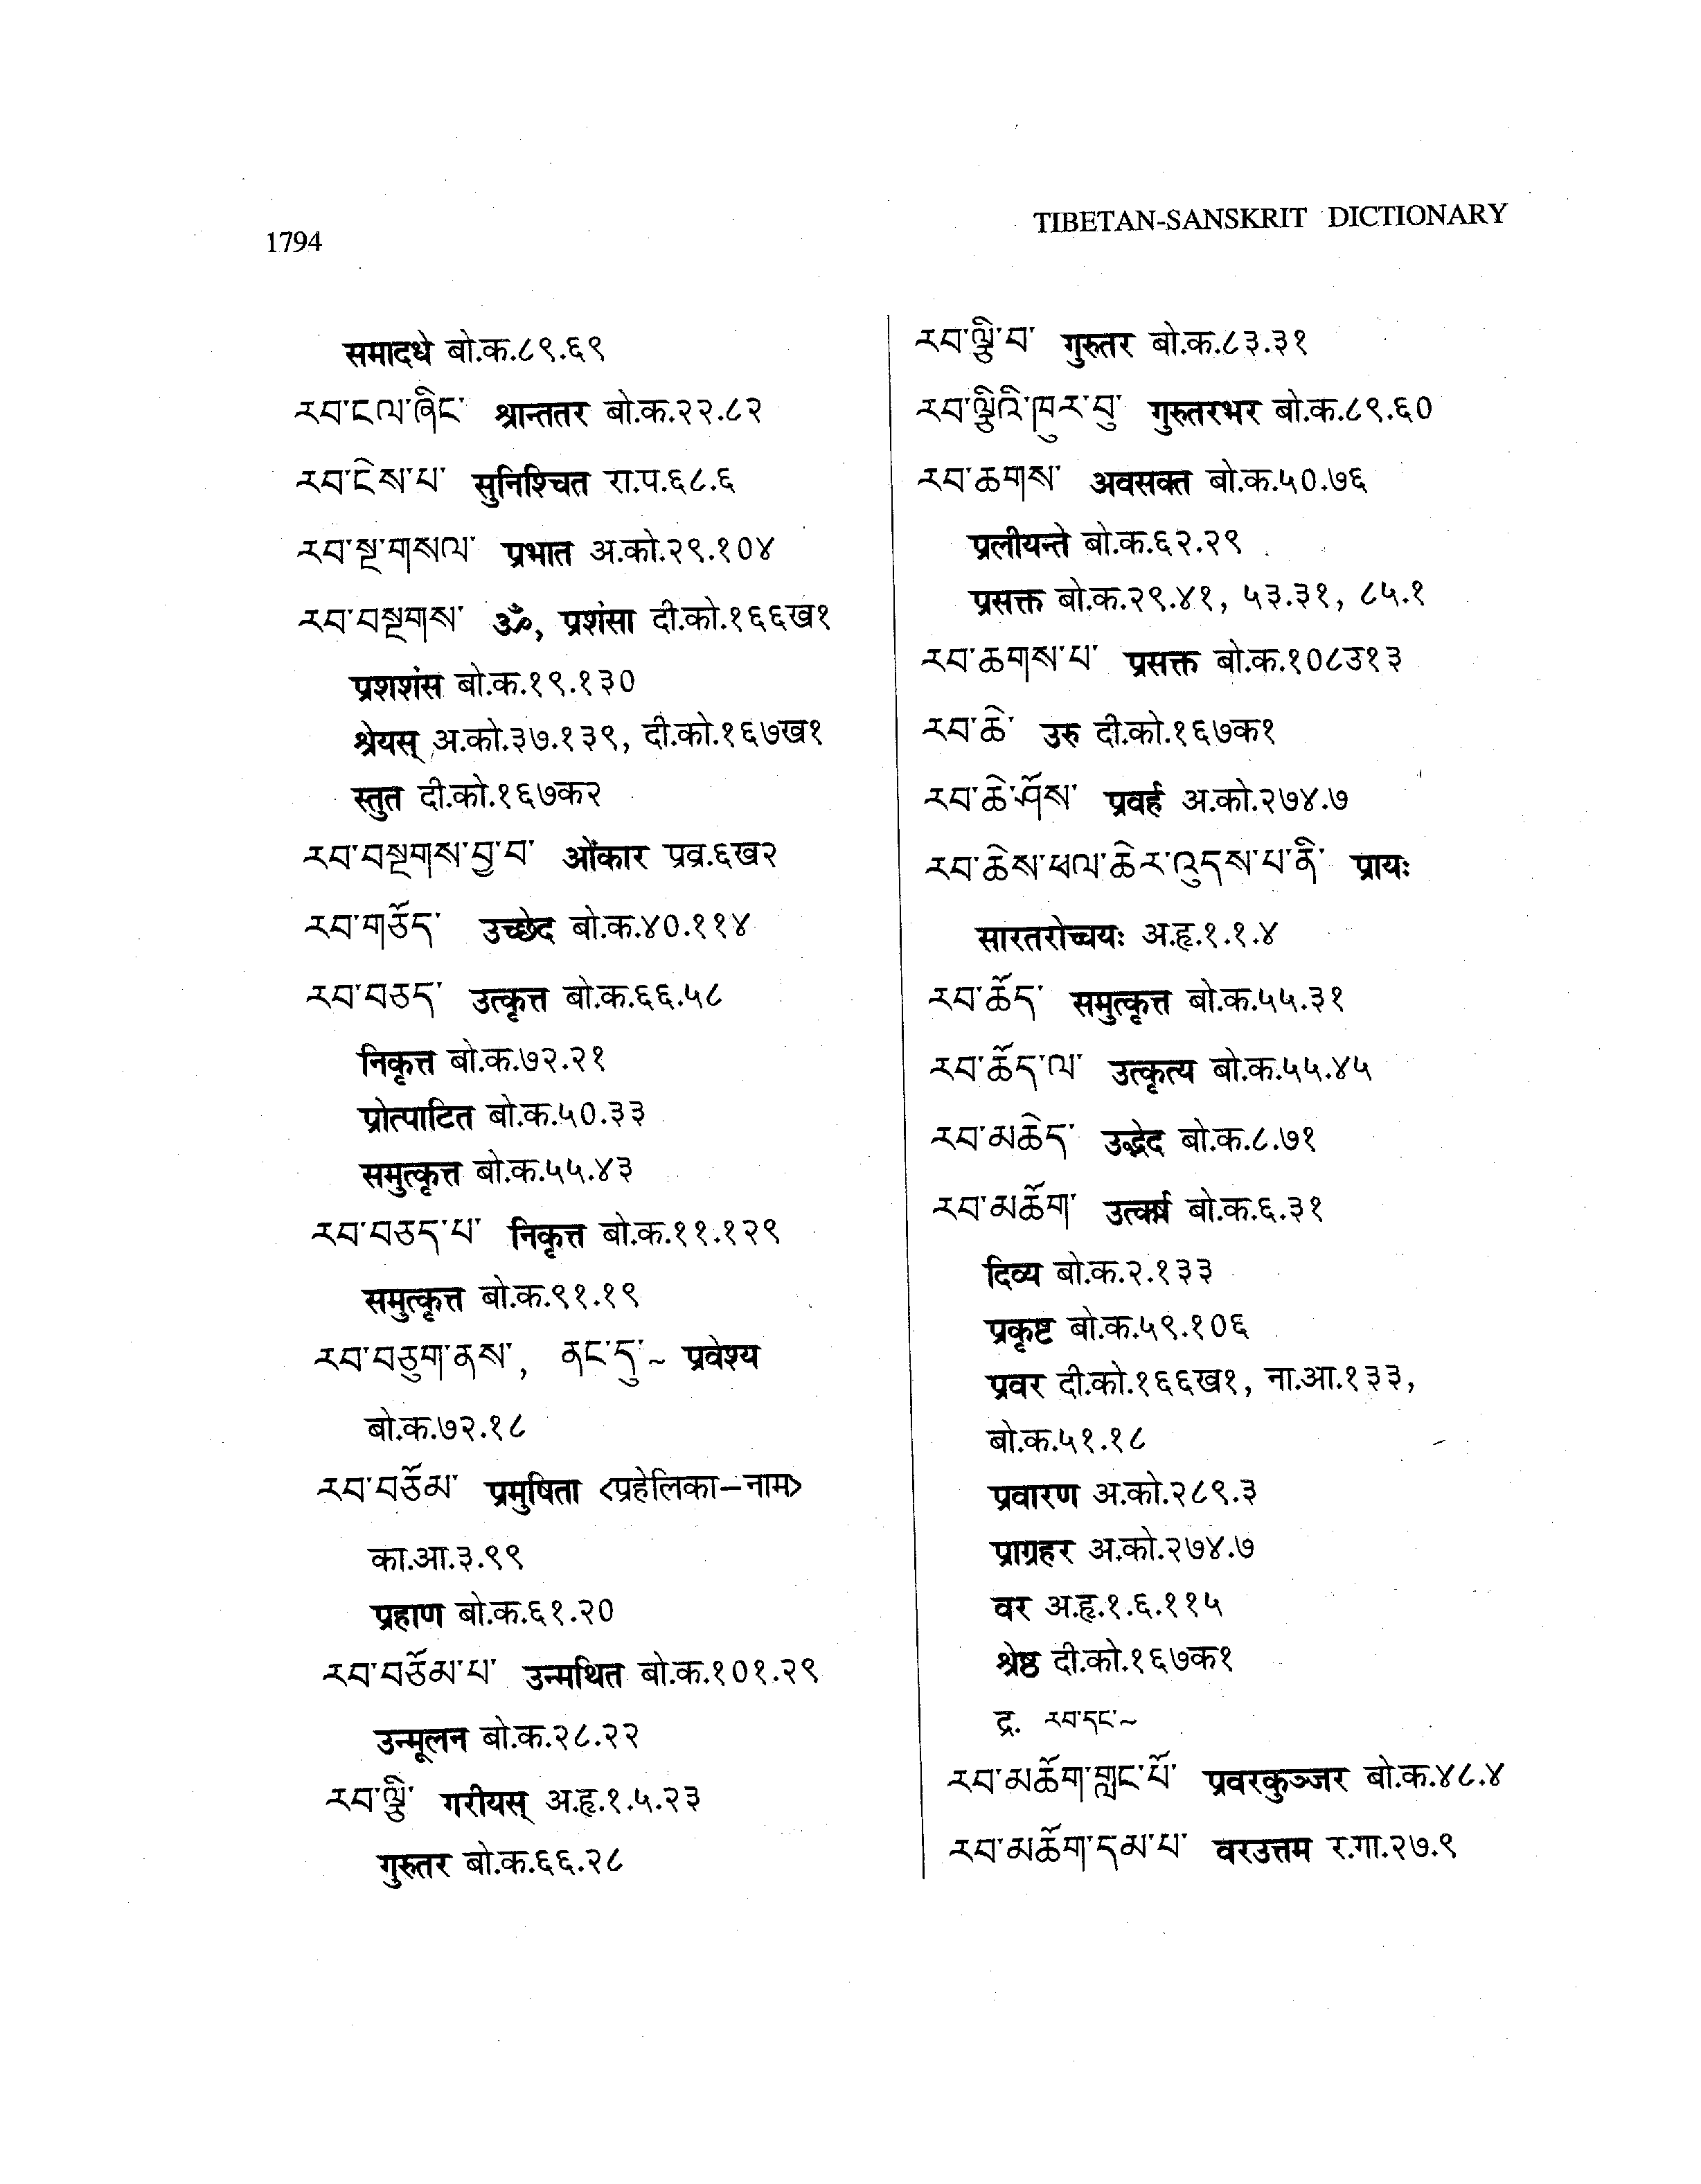 1794
TIBETAN-SANSKRIT DICTIONARY
समादधे बो.क.८९.६९
རབ་ངལ་ཞིང་ श्रान्ततर बो.क.२२.८२
རབ་ངེས་པ་ सुनिश्चित रा.प.६८.६
རབ་སྔ་གསལ་ प्रभात अ.को.२९.१०४
རབ་བསྔགས་ ॐ, प्रशंसा दी.को.१६६ख१
प्रशशंस बो.क.१९.१३०
श्रेयस् अ.को.३७.१३९, दी.को.१६७ख१
स्तुत दी.को.१६७क२
རབ་བསྔགས་བྱ་བ་ ओंकार प्रव्र.६ख२
རབ་གཅོད་ उच्छेद बो.क.४०.११४
རབ་བཅད་ उत्कृत्त बो.क.६६.५८
निकृत्त बो.क.७२.२१
प्रोत्पाटित बो.क.५०.३३
समुत्कृत्त बो.क.५५.४३
རབ་བཅད་པ་ निकृत्त बो.क.११.१२९
समुत्कृत्त बो.क.९१.१९
རབ་བཅུག་ནས་, ནང་དུ་~ प्रवेश्य
बो.क.७२.१८
རབ་བཅོམ་ प्रमुषिता <प्रहेलिका–नाम>
का.आ.३.९९
प्रहाण बो.क.६१.२०
རབ་བཅོམ་པ་ उन्मथित बो.क.१०१.२९
उन्मूलन बो.क.२८.२२
རབ་ལྕི་ गरीयस् अ.हृ.१.५.२३
गुरुतर बो.क.६६.२८
རབ་ལྕི་བ་ गुरुतर बो.क.८३.३१
རབ་ལྕིའི་ཁུར་བུ་ गुरुतरभर बो.क.८९.६०
རབ་ཆགས་ अवसक्त बो.क.५०.७६
प्रलीयन्ते बो.क.६२.२९
प्रसक्त बो.क.२९.४१, ५३.३१, ८५.१
རབ་ཆགས་པ་ प्रसक्त बो.क.१०८उ१३
རབ་ཆེ་ उरु दी.को.१६७क१
རབ་ཆེ་ཤོས་ प्रवर्ह अ.को.२७४.७
རབ་ཆེས་ཕལ་ཆེར་འདུས་པ་ནི་ प्रायः
सारतरोच्चयः अ.हृ.१.१.४
རབ་ཆོད་ समुत्कृत्त बो.क.५५.३१
རབ་ཆོད་ལ་ उत्कृत्य बो.क.५५.४५
རབ་མཆེད་ उद्भेद बो.क.८.७१
རབ་མཆོག་ उत्कर्ष बो.क.६.३१
दिव्य बो.क.२.१३३
प्रकृष्ट बो.क.५९.१०६
प्रवर दी.को.१६६ख१, ना.आ.१३३,
बो.क.५१.१८
प्रवारण अ.को.२८९.३
प्राग्रहर अ.को.२७४.७
वर अ.हृ.१.६.११५
श्रेष्ठ दी.को.१६७क१
द्र. རབ་དང་~
རབ་མཆོག་གླང་པོ་ प्रवरकुञ्जर बो.क.४८.४
རབ་མཆོག་དམ་པ་ वरउत्तम र.गा.२७.९